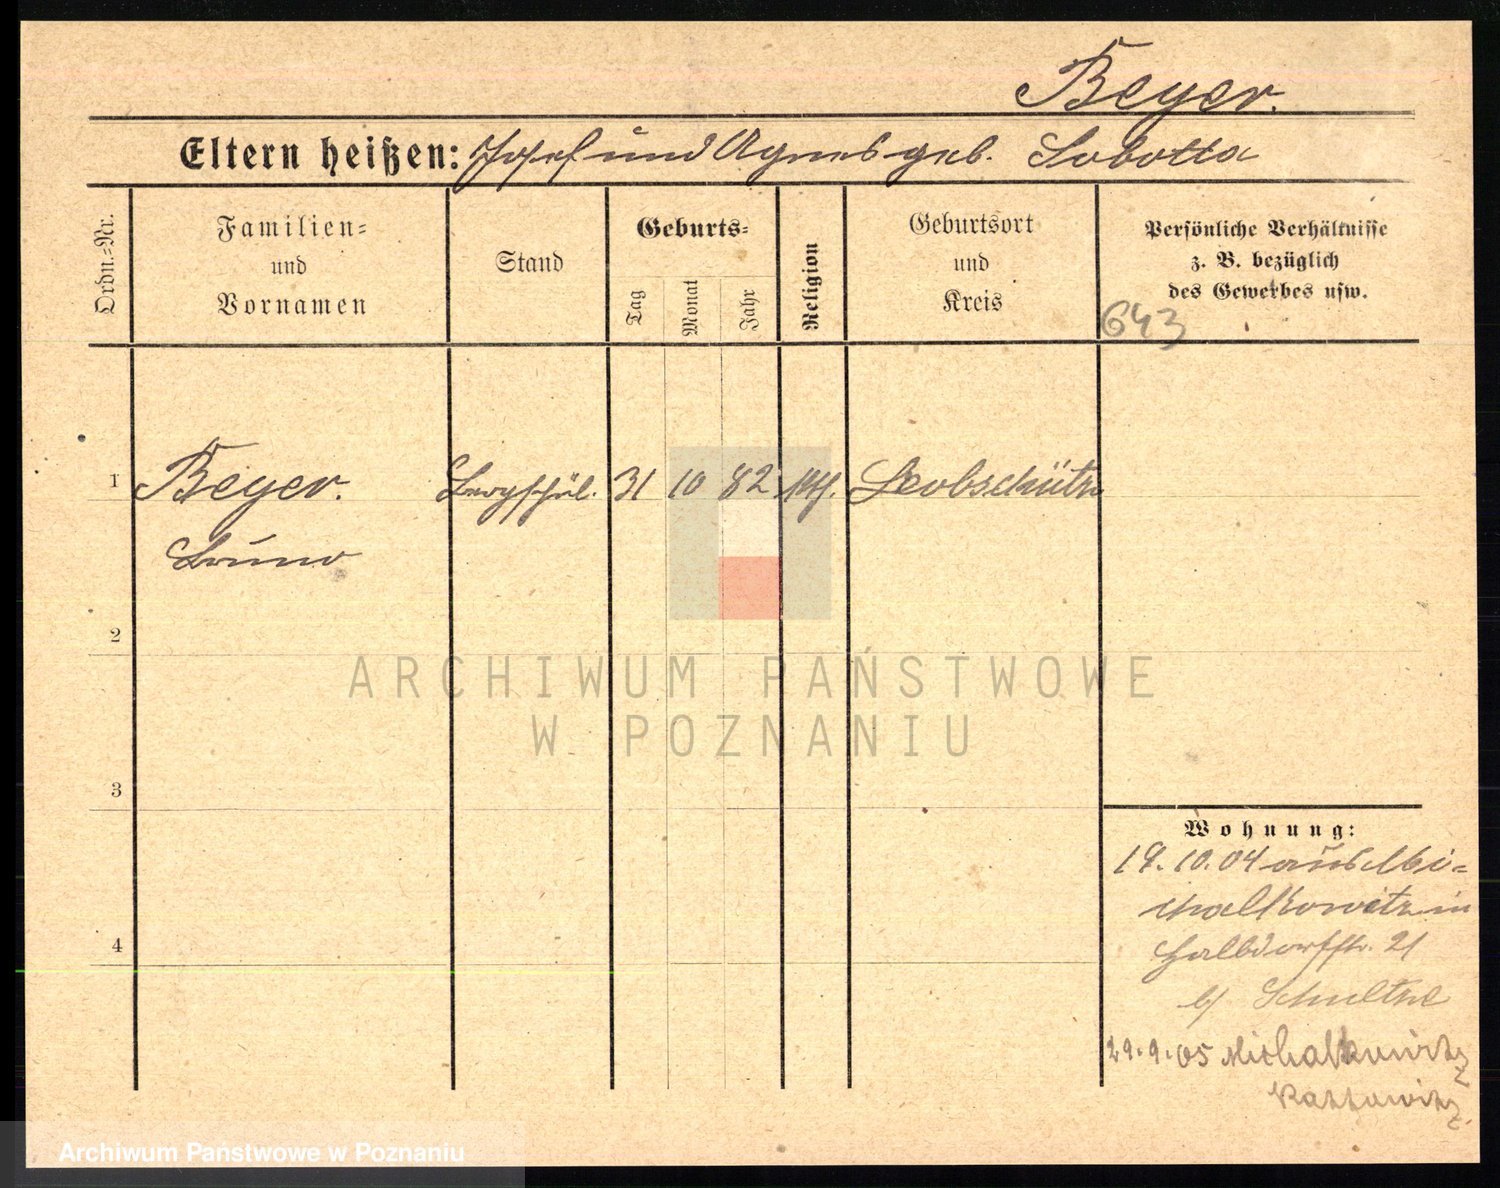 Beyer.
Eltern heißen: Josef und Agnes geb. Sobotta
Ordn.-Nr.
Familien-
und
Vornamen
Stand
Geburts-
Tag
Monat
Jahr
Religion
Geburtsort
und
Kreis
Persönliche Verhältnisse
z. B. bezüglich
des Gewerbes usw.
643
1 Beyer. Bergschül. 31 10 82 kth. Leobschütz
Bruno
2
3
4
Wohnung:
19.10.04 aus Mi-
chalkowitz in
Halbdorfstr. 21
b/ Schultze
29.9.05 Michalkowitz
Kattowitz.
ARCHIWUM PAŃSTWOWE
W POZNANIU
Archiwum Państwowe w Poznaniu